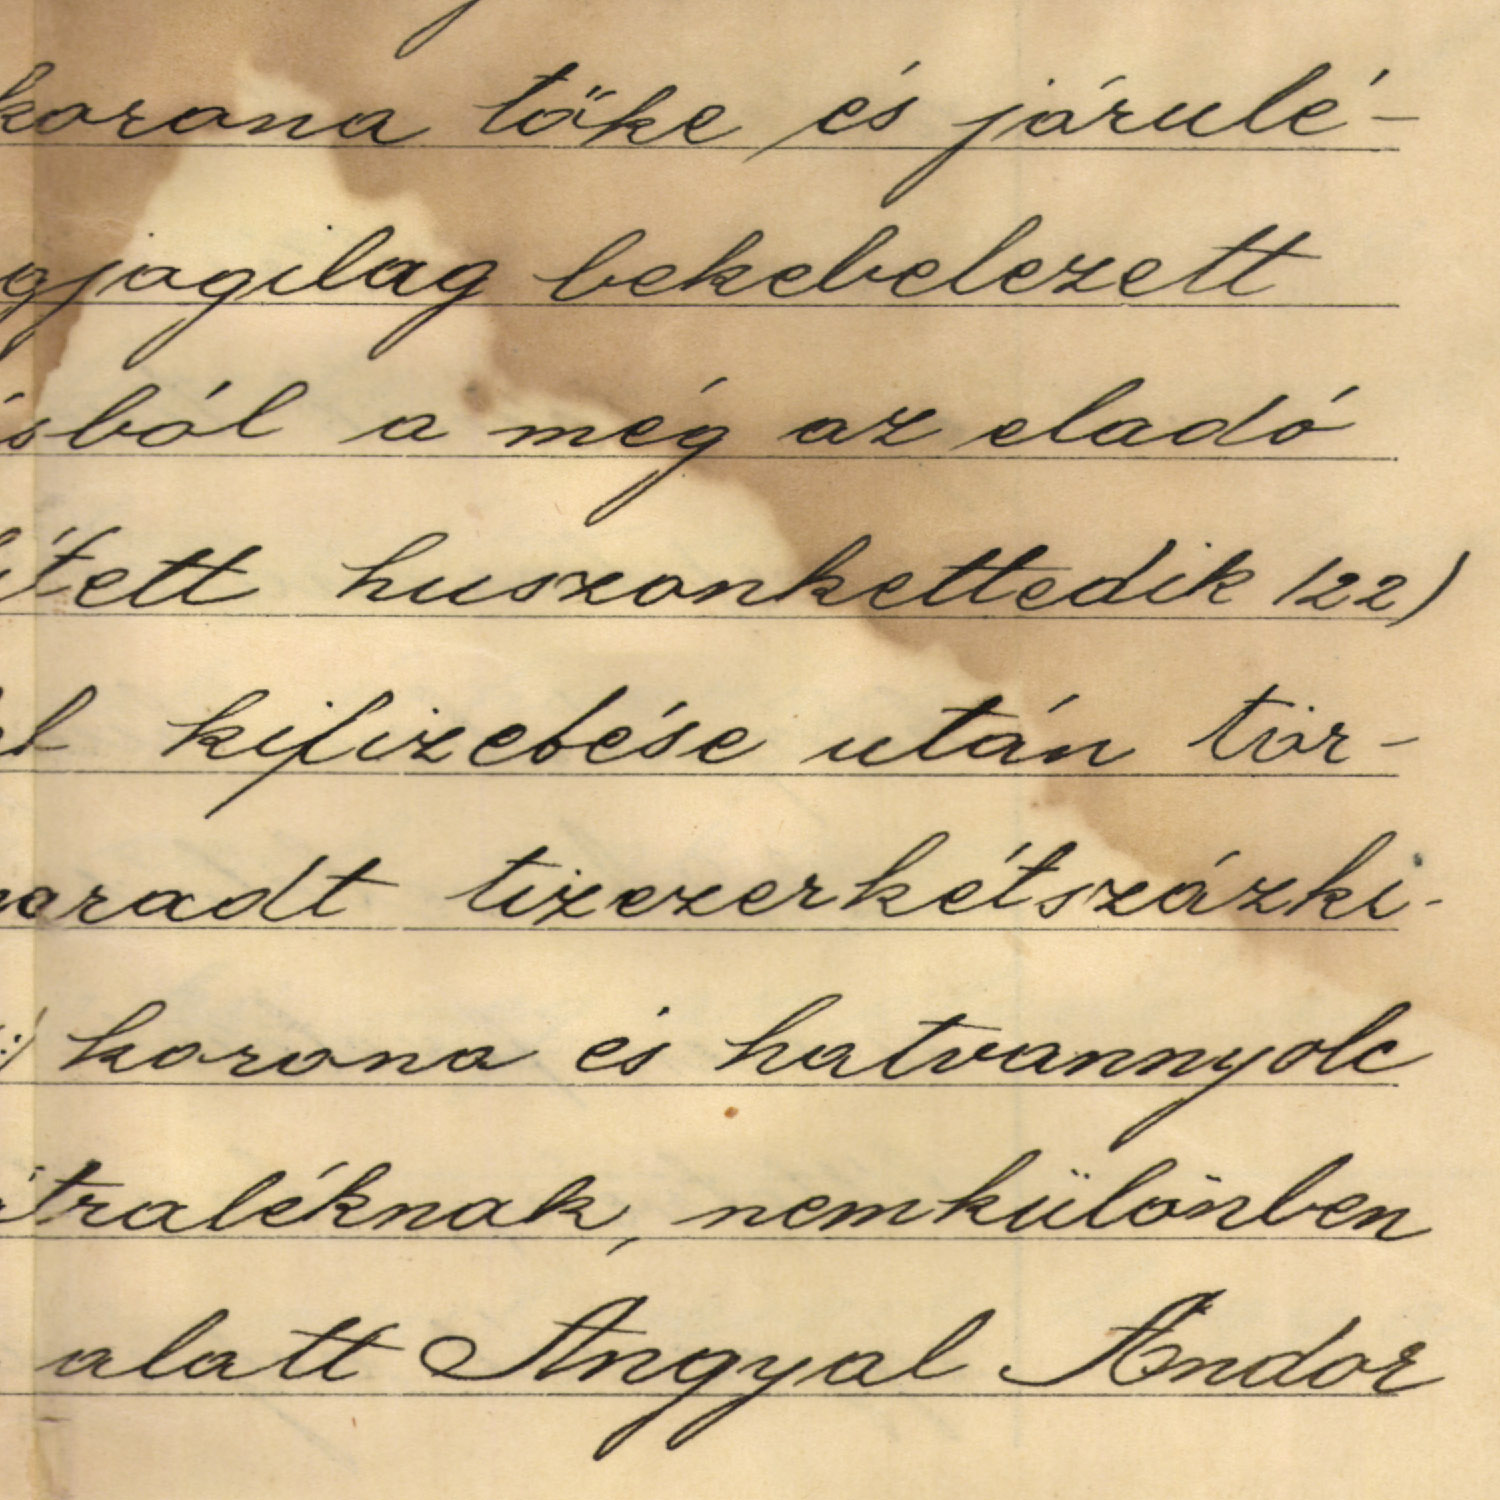 korona tőke és járulé-
gjogilag bekebelezett
ásból a még az eladó
ített huszonkettedik /22)
kifizetése után tör-
maradt tizezerkétszázki-
korona és hatvannyolc
átraléknak, nemkülönben
alatt Angyal Andor